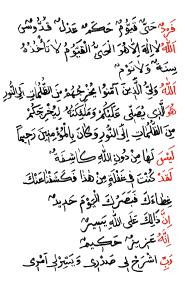 فَرْدٌ حَيٌّ قَيُّومٌ حَكَمٌ عَدْلٌ قُدُّوسٌ
اَللّٰهُ لَا اِلٰهَ اِلَّا هُوَ الْحَيُّ الْقَيُّومُ لَا تَأْخُذُهُ
سِنَةٌ وَلَا نَوْمٌ
اَللّٰهُ وَلِيُّ الَّذِينَ آمَنُوا يُخْرِجُهُمْ مِنَ الظُّلُمَاتِ اِلَى النُّورِ
هُوَ الَّذِي يُصَلِّي عَلَيْكُمْ وَمَلٰئِكَتُهُ لِيُخْرِجَكُمْ
مِنَ الظُّلُمَاتِ اِلَى النُّورِ وَكَانَ بِالْمُؤْمِنِينَ رَحِيمًا
لَيْسَ لَهَا مِنْ دُونِ اللّٰهِ كَاشِفَةٌ
لَقَدْ كُنْتَ فِي غَفْلَةٍ مِنْ هٰذَا فَكَشَفْنَا عَنْكَ
غِطَاءَكَ فَبَصَرُكَ الْيَوْمَ حَدِيدٌ
اِنَّ ذَالِكَ عَلَى اللّٰهِ يَسِيرٌ
اِنَّهُ عَزِيزٌ حَكِيمٌ
رَبِّ اشْرَحْ لِي صَدْرِي وَيَسِّرْ لِي اَمْرِي